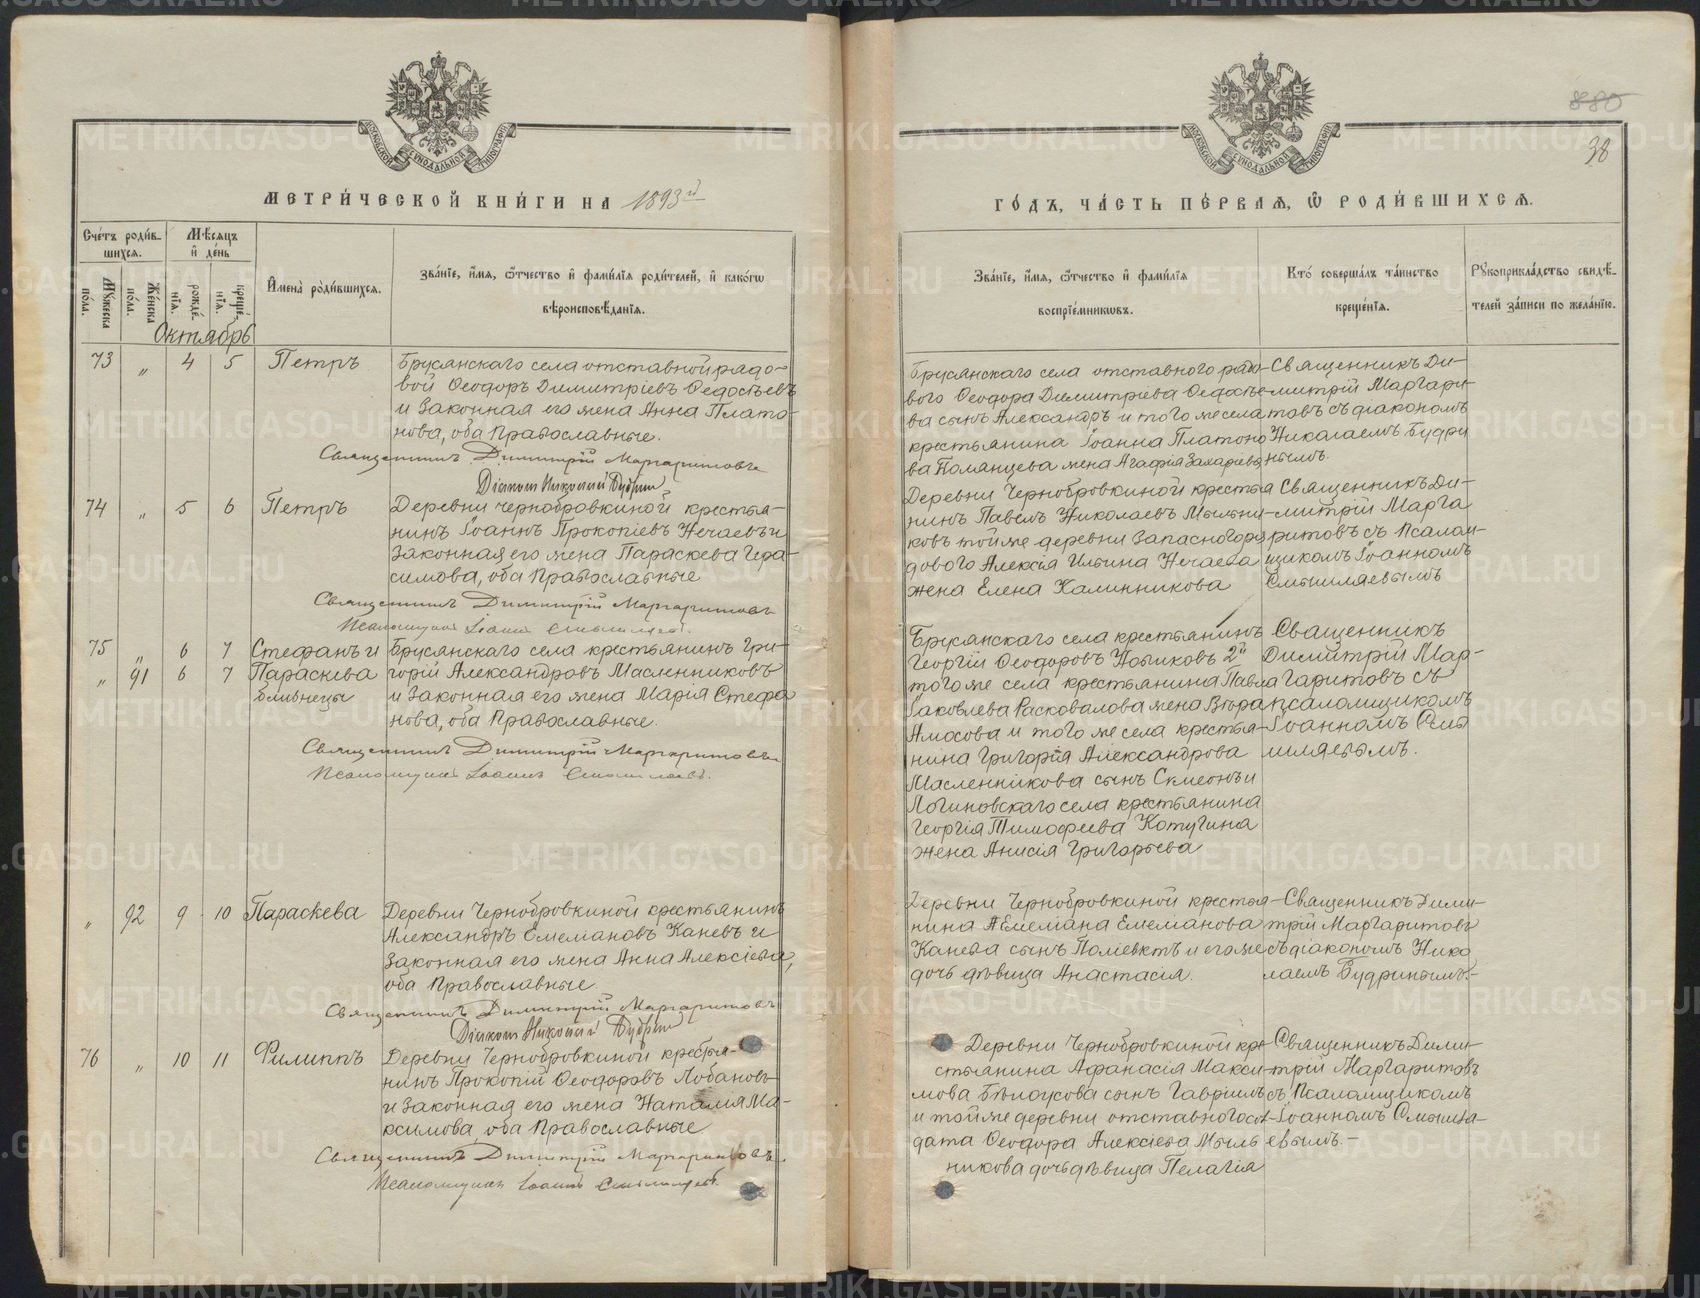 880
38
МОСКОВСКОЙ СѴНОДАЛЬНОЙ ТИПОГРАФІИ
МОСКОВСКОЙ СѴНОДАЛЬНОЙ ТИПОГРАФІИ
МЕТРИ́ЧЕСКОЙ КНИ́ГИ НА 1893 гд
ГО́ДЪ, ЧА́СТЬ ПЕ́РВАЯ, Ѡ҆ РОДИ́ВШИХСЯ.
Сче́тъ роди́в-
шихся.
Мѣ́сяцъ
и҆ де́нь
Мꙋ́жеска
по́ла.
Же́нска
по́ла.
рожде́-
нїя.
креще́-
нїя.
И҆мена̀ роди́вшихся.
Зва́нїе, и҆́мя, ѻ҆́тчество и҆ фами́лїя роди́телей, и҆ како́гѡ
вѣроисповѣ́данїя.
Зва́нїе, и҆́мя, ѻ҆́тчество и҆ фами́лїя
воспрїе́мникѡвъ.
Кто̀ соверша́лъ та́инство
креще́нїя.
Рꙋкоприкла́дство свидѣ́-
телей за́писи по жела́нїю.
Октябрь
73 " 4 5 Петръ
Брусянскаго села отставной рядо-
вой Ѳеодоръ Димитріевъ Ѳедосѣевъ
и законная его жена Анна Плато-
нова, оба Православные.
Священникъ Димитрій Маргаритовъ
Діаконъ Николай Будринъ
Брусянскаго села отставного рядо-
вого Ѳеодора Димитріева Ѳедосѣе-
ва сынъ Александръ и того же села
крестьянина Іоанна Платоно
ва Поланцева жена Агафія Захаріева
Священникъ Ди-
митрій Маргари-
товъ съ діакономъ
Николаемъ Будри
нымъ.
74 " 5 6 Петръ
Деревни Чернобровкиной крестья-
нинъ Іоаннъ Прокопіевъ Нечаевъ и
законная его жена Параскева Гера-
симова, оба Православные
Священникъ Димитрій Маргаритовъ
Псаломщикъ Іоаннъ Смышляевъ.
Деревни Чернобровкиной крестья
нинъ Павелъ Николаевъ Мыльни-
ковъ той же деревни запасного ря
дового Алексія Ильина Нечаева
жена Елена Калинникова
Священникъ Ди-
митрій Марга
ритовъ съ Псалом-
щикомъ Іоанномъ
Смышляевымъ
75 " 6 7 Стефанъ и
" 91 6 7 Параскева
близнецы
Брусянскаго села крестьянинъ Гри-
горій Александровъ Масленниковъ
и законная его жена Марія Стефа
нова, оба Православные.
Священникъ Димитрій Маргаритовъ
Псаломщикъ Іоаннъ Смышляевъ.
Брусянскаго села крестьянинъ
Георгій Ѳеодоровъ Новиковъ 2й
того же села крестьянина Павла
Іаковлева Расковалова жена Вѣра
Амосова и того же села крестья-
нина Григорія Александрова
Масленникова сынъ Симеонъ и
Логиновскаго села крестьянина
Георгія Тимофеева Котугина
жена Анисія Григорьева
Священникъ
Димитрій Мар-
гаритовъ съ
псаломщикомъ
Іоанномъ Смы
шляевымъ.
" 92 9 10 Параскева
Деревни Чернобровкиной крестьянинъ
Александръ Емеліановъ Каневъ и
законная его жена Анна Алексіева,
оба Православные.
Священникъ Димитрій Маргаритовъ
Діаконъ Николай Будринъ
Деревни Чернобровкиной крестья-
нина Емеліана Емеліанова
Канева сынъ Поліевктъ и его же
дочь дѣвица Анастасія.
Священникъ Дими-
трій Маргаритовъ
съ діакономъ Нико
лаемъ Будринымъ.-
76 " 10 11 Филиппъ
Деревни Чернобровкиной крестья-
нинъ Прокопій Ѳеодоровъ Лобановъ
и законная его жена Наталія Ма-
ксимова, оба Православные
Священникъ Димитрій Маргаритовъ
Псаломщикъ Іоаннъ Смышляевъ.
Деревни Чернобровкиной кре-
стьянина Афанасія Макси-
мова Бѣлоусова сынъ Гавріилъ
и той же деревни отставного сол-
дата Ѳеодора Алексіева Мыль
никова дочь дѣвица Пелагія
Священникъ Дими-
трій Маргаритовъ
съ Псаломщикомъ
Іоанномъ Смышля-
евымъ.-